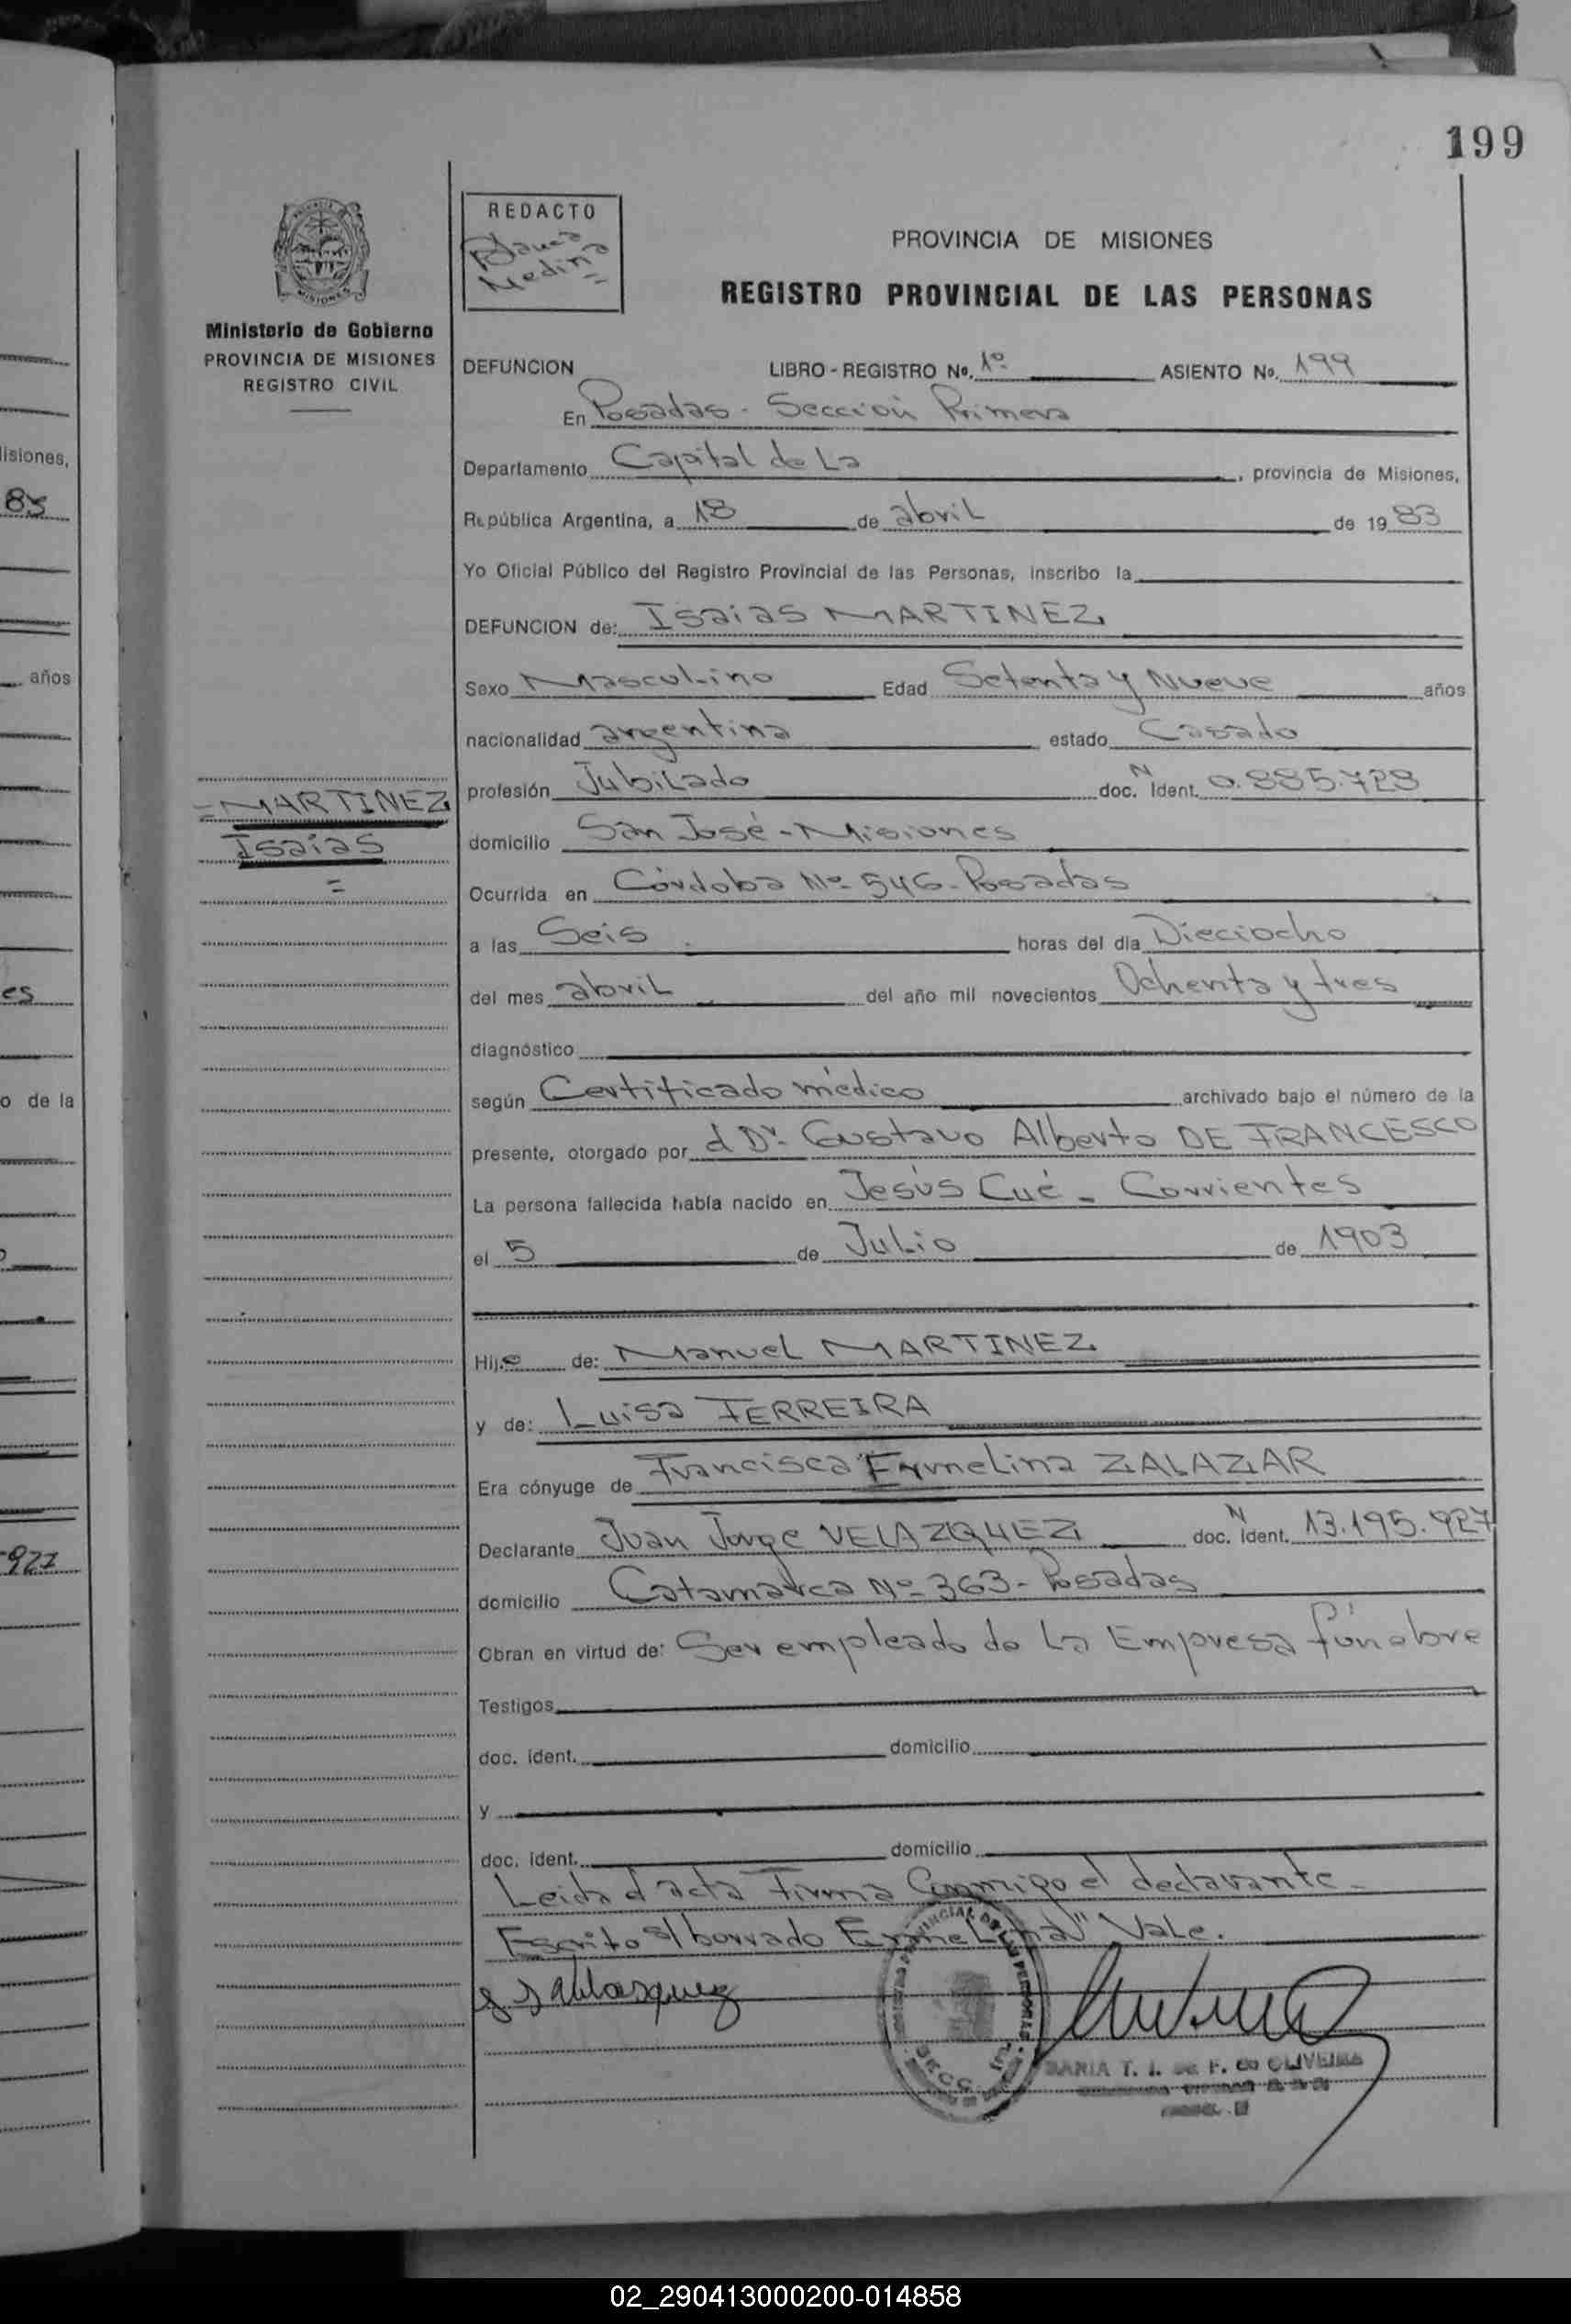 199
REDACTO
Blanca
Medina
=
PROVINCIA DE MISIONES
REGISTRO PROVINCIAL DE LAS PERSONAS
MISIONES
Ministerio de Gobierno
PROVINCIA DE MISIONES
REGISTRO CIVIL
DEFUNCION LIBRO - REGISTRO No. 1º ASIENTO No. 199
En Posadas - Sección Primera
Departamento Capital de La, provincia de Misiones,
República Argentina, a 18 de abril de 1983
Yo Oficial Público del Registro Provincial de las Personas, inscribo la
DEFUNCION de: Isaias MARTINEZ
Sexo Masculino Edad Setenta y Nueve años
nacionalidad argentina estado Casado
profesión Jubilado doc. N Ident. 0.885.728
= MARTINEZ
Isaias
=
domicilio San José - Misiones
Ocurrida en Córdoba Nº 546 - Posadas
a las Seis horas del día Dieciocho
del mes abril del año mil novecientos Ochenta y tres
diagnóstico
según Certificado médico archivado bajo el número de la
presente, otorgado por el Dr. Gustavo Alberto DE FRANCESCO
La persona fallecida había nacido en Jesús Cué - Corrientes
el 5 de Julio de 1903
Hijo de: Manuel MARTINEZ
y de: Luisa FERREIRA
Era cónyuge de Francisca Ermelina ZALAZAR
Declarante Juan Jorge VELAZQUEZ doc. N Ident. 13.195.927
domicilio Catamarca Nº 363 - Posadas
Obran en virtud de: Ser empleado de La Empresa fúnebre
Testigos
doc. ident. domicilio
y
doc. ident. domicilio
Leida el acta Firma Conmigo el declarante -
Escrito s/ borrado "Ermelina" Vale.
MARIA T. I. DE F. de OLIVEIRA
lisiones,
83
años
es
o de la
927
02_290413000200-014858